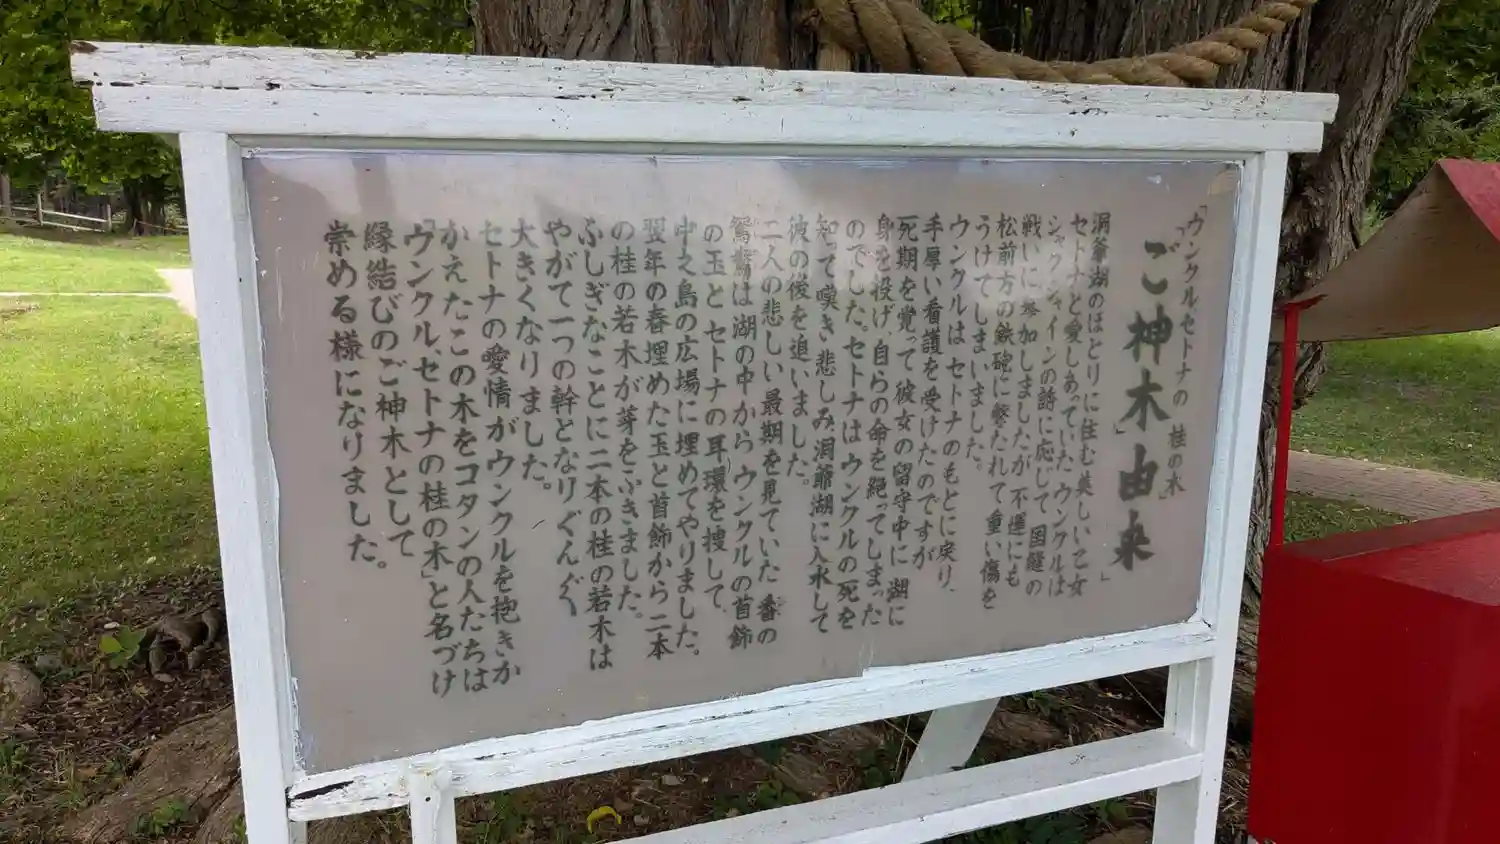 「ウンクル、セトナの 桂の木」
「ご神木」由来
洞爺湖のほとりに住む美しい乙女
セトナと愛しあっていた ウンクルは
シャクシャインの詩に応じて 国縫の
戦いに参加しましたが 不運にも
松前方の鉄砲に撃たれて 重い傷を
うけてしまいました。
ウンクルは セトナのもとに戻り、
手厚い看護を受けたのですが
死期を覚って 彼女の留守中に 湖に
身を投げ 自らの命を絶ってしまった
のでした。セトナは ウンクルの死を
知って 嘆き悲しみ 洞爺湖に入水して
彼の後を追いました。
二人の悲しい最期を見ていた 一番の
鴛鴦は 湖の中から ウンクルの首飾
の玉と セトナの耳環を捜して、
中之島の広場に埋めてやりました。
翌年の春埋めた玉と首飾から二本
の桂の若木が芽をふきました。
ふしぎなことに二本の桂の若木は
やがて一つの幹となりぐんぐん
大きくなりました。
セトナの愛情がウンクルを抱きか
かえたこの木をコタンの人たちは
「ウンクル、セトナの桂の木」と名づけ
縁結びのご神木として
崇める様になりました。